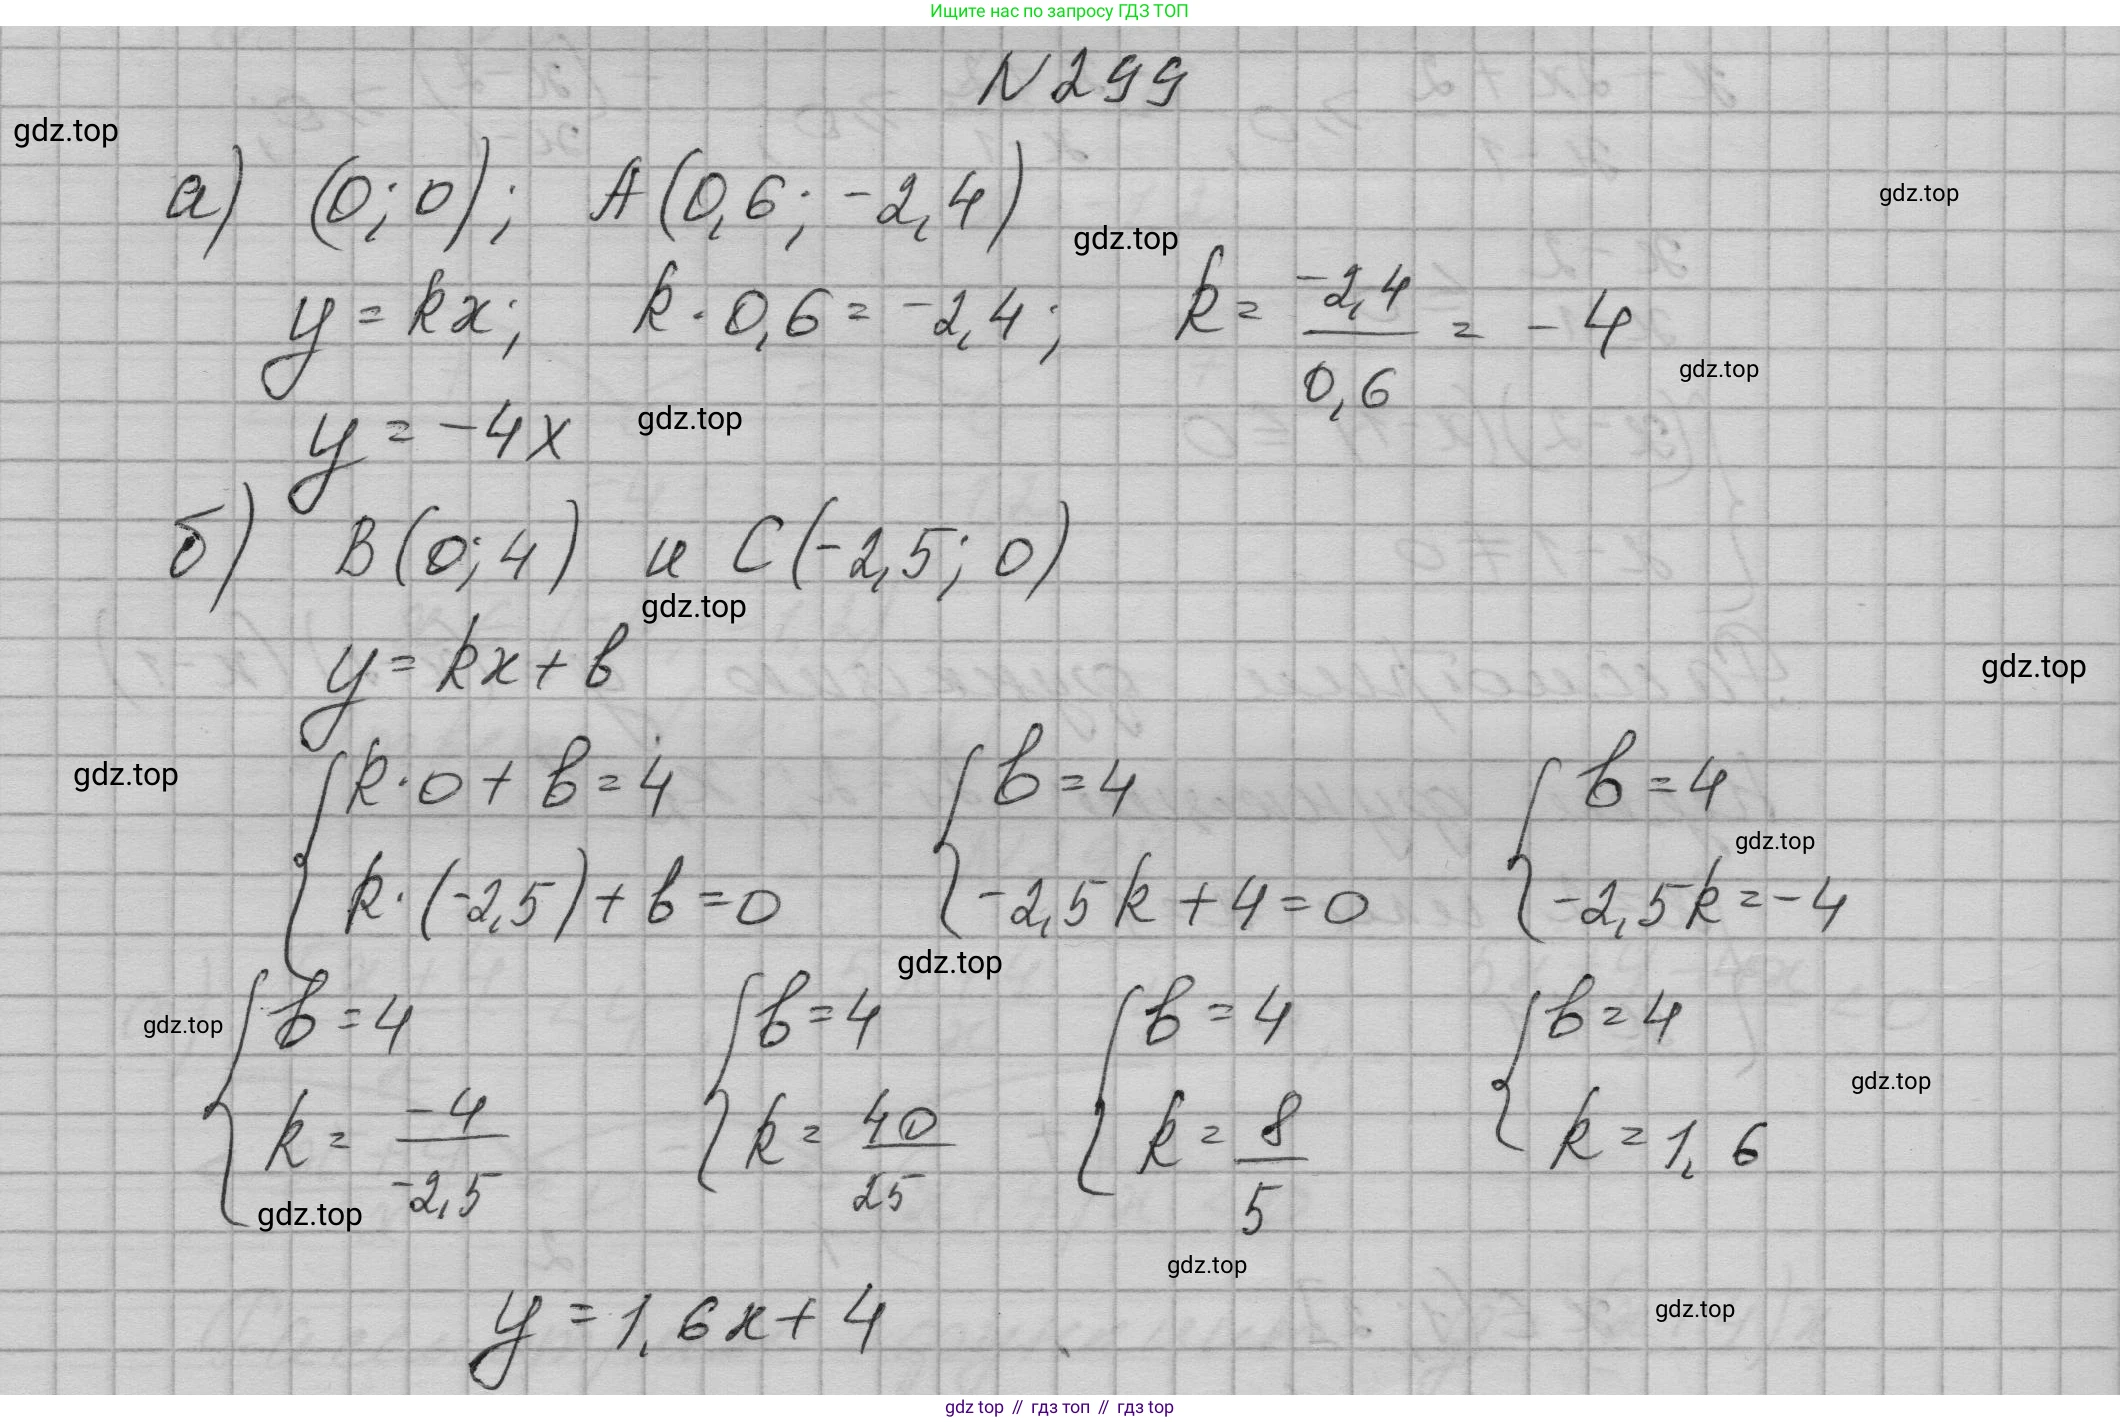 Ищите нас по запросу ГДЗ ТОП
N 299
gdz.top
а) (0; 0); A(0,6; -2,4)
gdz.top
gdz.top
y = kx; k · 0,6 = -2,4; k = -2,4/0,6 = -4
gdz.top
y = -4x
gdz.top
б) B(0; 4) и C(-2,5; 0)
gdz.top
y = kx + b
gdz.top
gdz.top
{k · 0 + b = 4 {b = 4 {b = 4
gdz.top
k · (-2,5) + b = 0 -2,5k + 4 = 0 -2,5k = -4
gdz.top
{b = 4 {b = 4 {b = 4 {b = 4
gdz.top
gdz.top
k = -4/-2,5 k = 40/25 k = 8/5 k = 1,6
gdz.top
gdz.top
gdz.top
y = 1,6x + 4
gdz top // гдз топ // гдз top